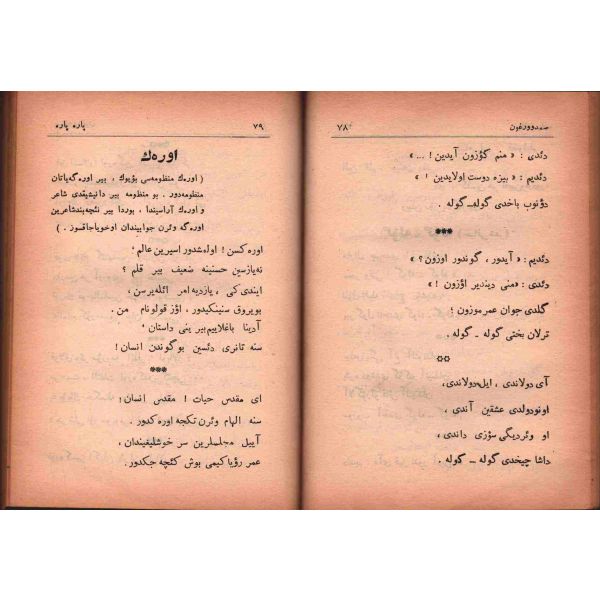 صمدوورغون ٧٨
دئدی : « منم کؤزون آیدین ! ... »
دئدیم : « بیزه دوست اولایدین ! »
دؤنوب باخدی گوله ــ گوله .
***
دئدیم : « آیدور ، گوندور اوزون ؟ »
دئدی : « منی دیندیر اؤزون ! »
گلدی جوان عمرموزون !
ترلان بختی گوله ــ گوله .
**
آی دولاندی ، ایل دولاندی ،
اونودولدی عشقین آندی ،
او وئردیگی سؤزی داندی ،
داشا چیخدی گوله ــ گوله .
٧٩ پاره پاره
اوره‌ك
( اوره‌ك منظومه‌سی بؤیوك ، بیر اوره گه‌یاتان
منظومه‌دور . بو منظومه بیر دانیشیقدی شاعر
و اوره‌ك آراسیندا ، بوردا بیر نئچه‌بندشاعرین
اوره گه وئرن جوابیندان اوخویاجاقسوز . )
اوره کسن ! اوله‌شدور اسیرین عالم ،
نه‌یازسین حسنینه ضعیف بیر قلم ؟
ایندی کی ، یازدیه امر ائله‌یرسن ،
بویروق سنینکیدور ، اؤز قولونام من .
آدینا باغلاییم بیر ینی داستان ،
سنه تانری دئسین بوگوندن انسان !
***
ای مقدس حیات ! مقدس انسان !
سنه الهام وئرن تکجه اوره کدور .
آییل مجلسلرین سر خوشلیغیندان ،
عمر رؤیاکیمی بوش کئچه جکدور .